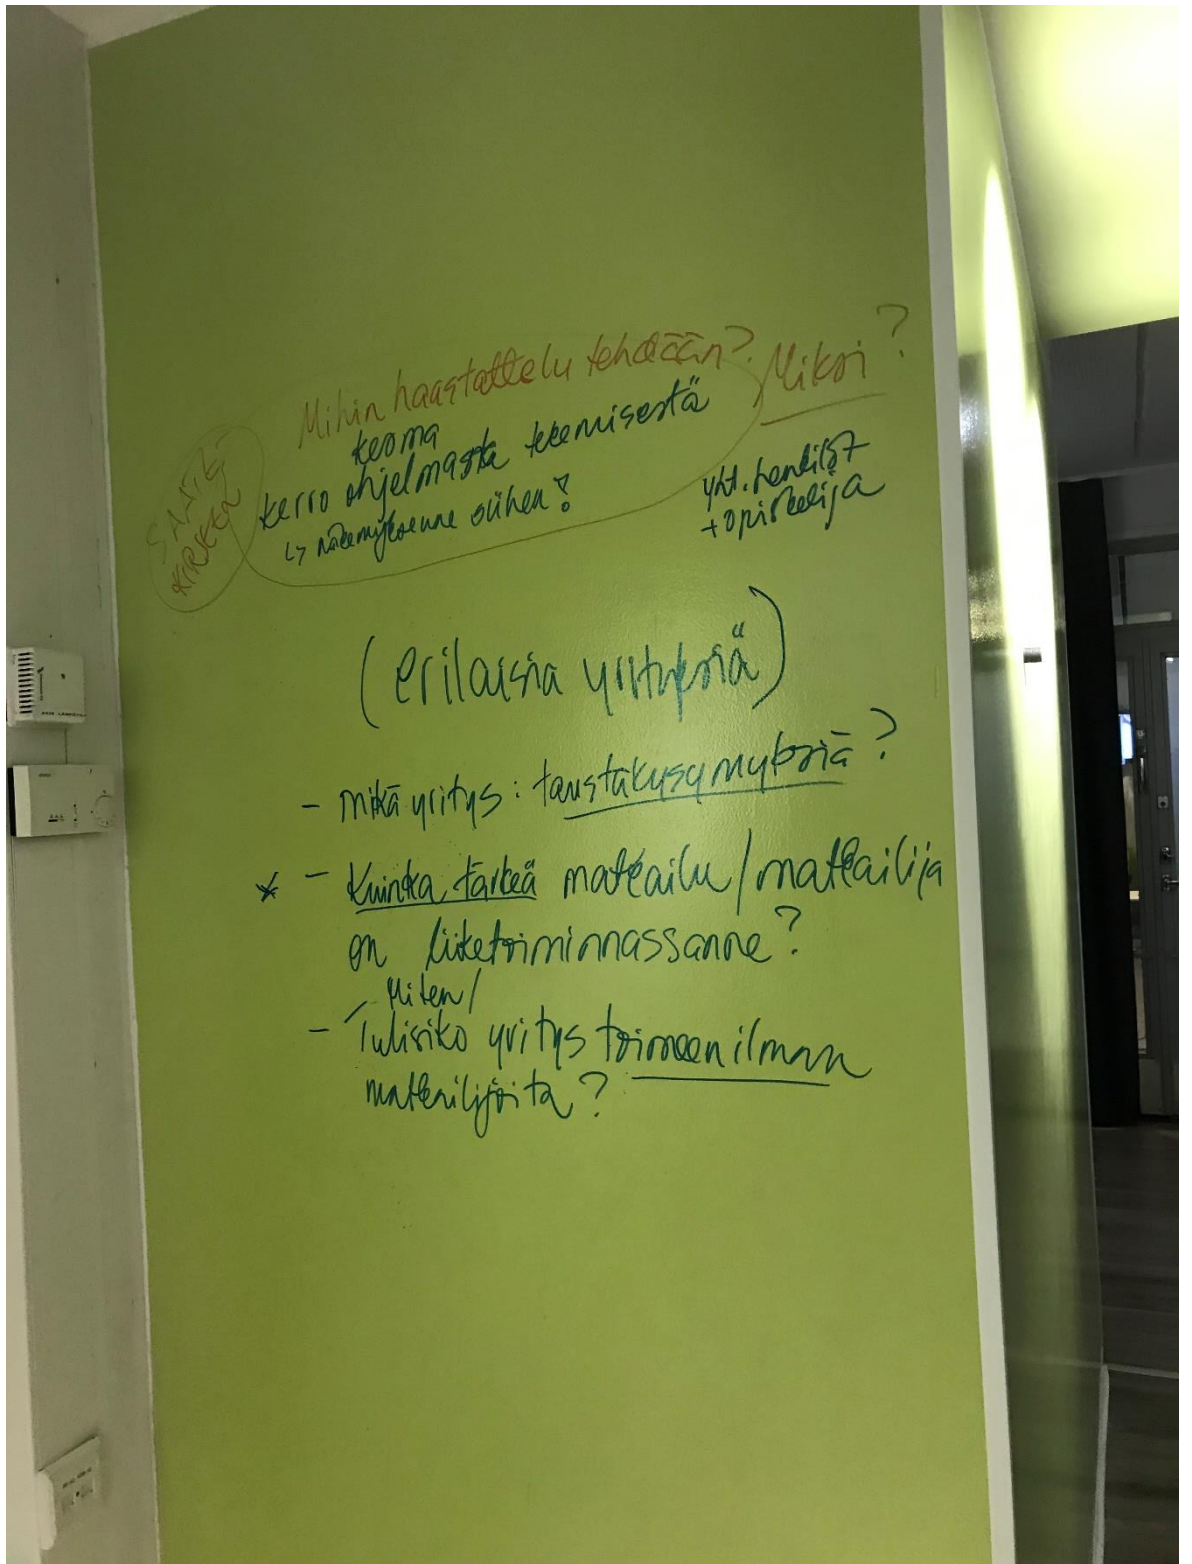 Mihin haastattelu tehdään? Miksi?
SÄHKÖ-
KIRJEEN
teoma
kerro ohjelmasta tekemisestä
↳ näkemyksenne siihen?
yht. henkilöt
+ opiskelija
(erilaisia yrityksiä)
- mikä yritys: taustakysymyksiä?
* - Kuinka tärkeä matkailu / matkailija
on liiketoiminnassanne?
Miten/
- Tulisiko yritys toimeen ilman
matkailijoita?